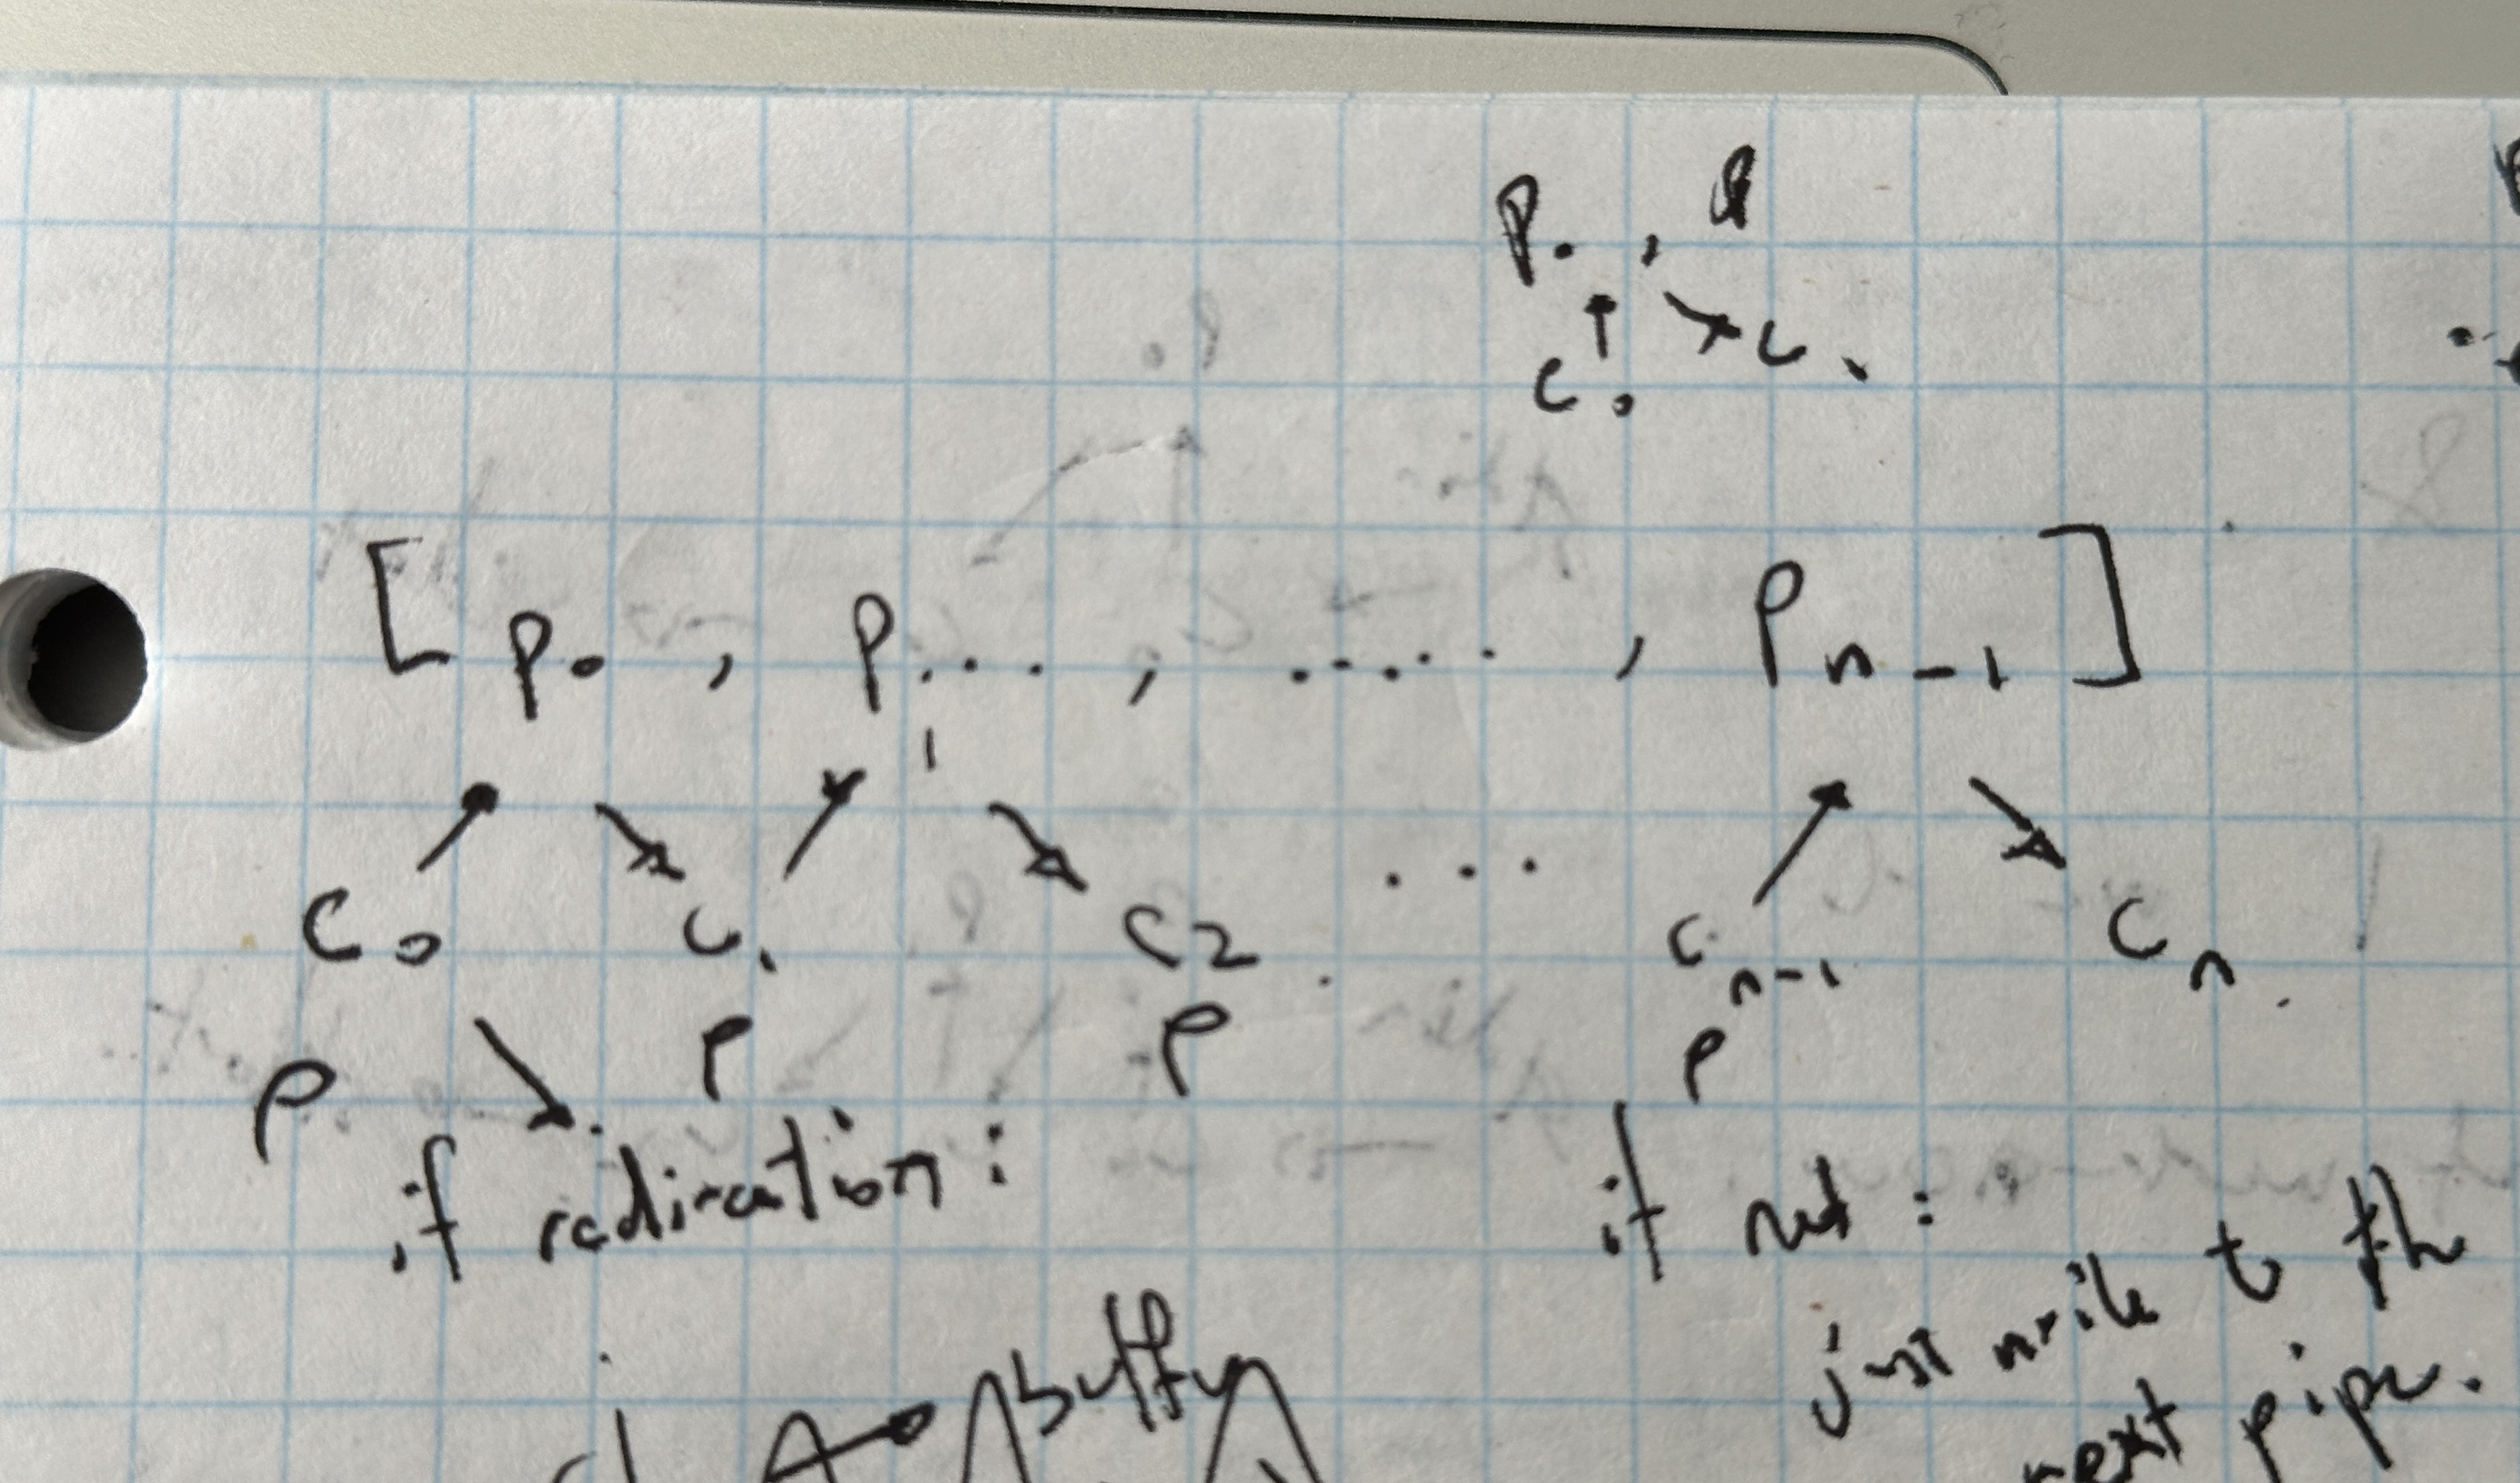 P₀ ,
C₀ C₁
[ P₀ , P₁ ... , ..... , Pn-1 ]
C₀ C₁ C₂ ... Cn-1 Cn
P P P P
if redirection :
if not :
just write to th
next pipe.
buffer